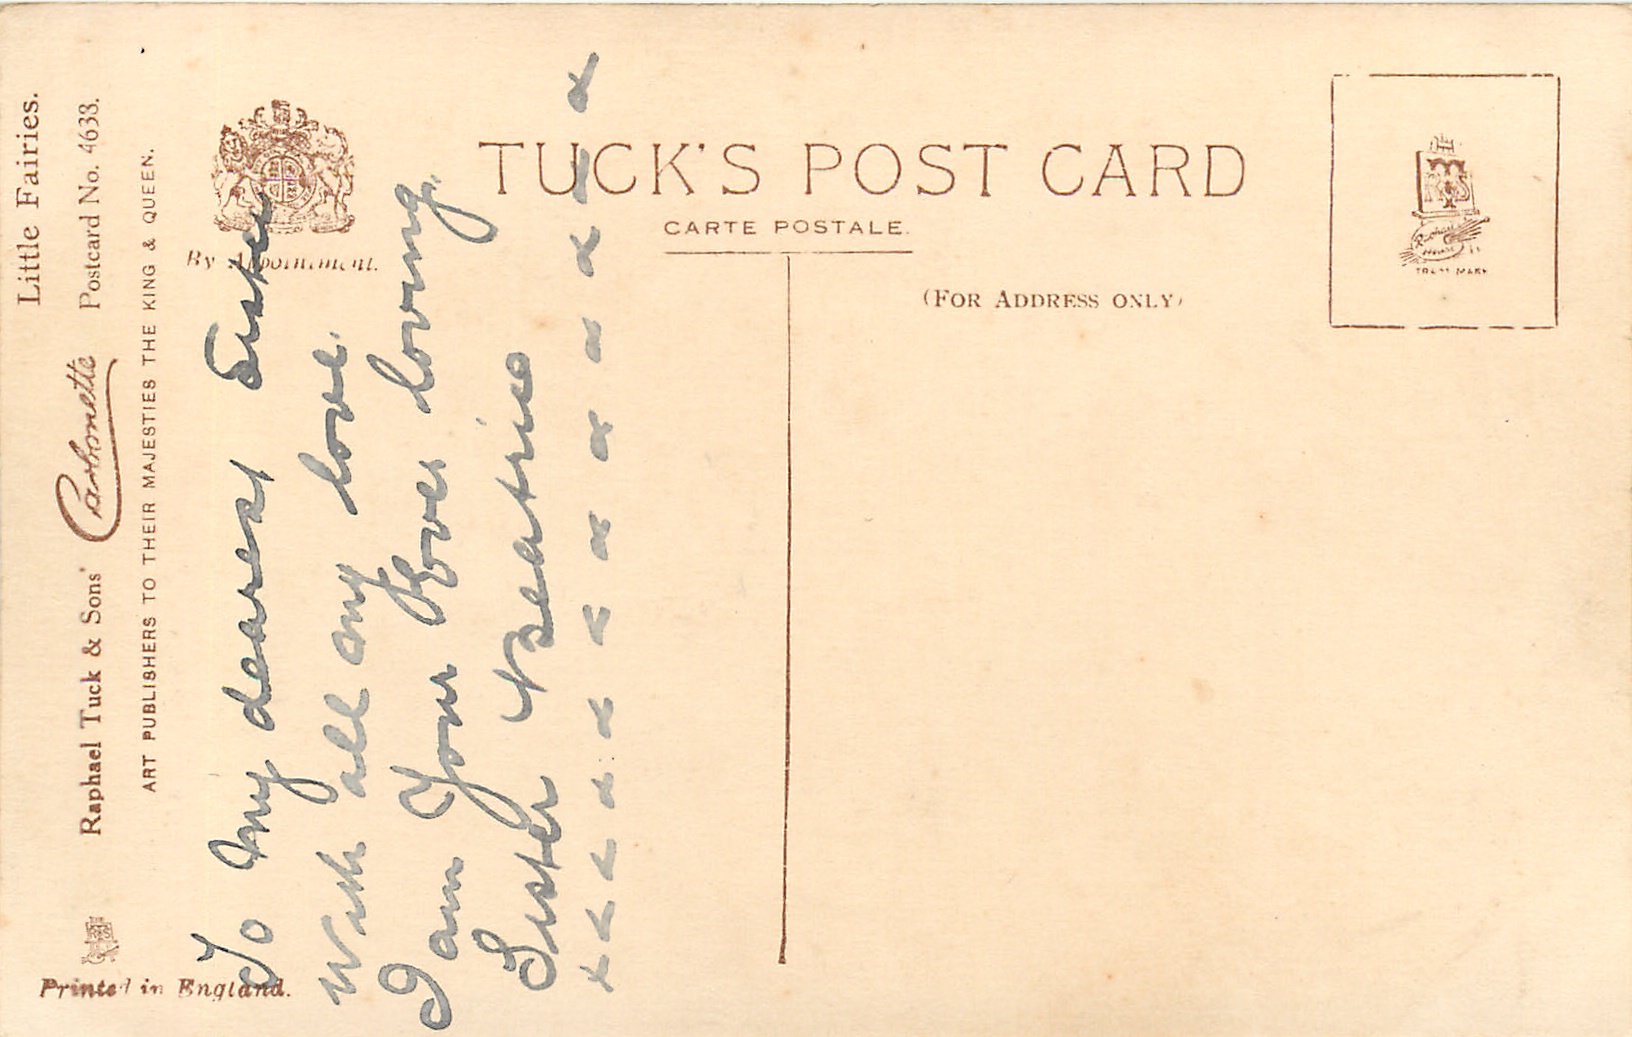 Little Fairies.
Raphael Tuck & Sons' Carbonette Postcard No. 4633.
ART PUBLISHERS TO THEIR MAJESTIES THE KING & QUEEN.
By Appointment.
Printed in England.
TUCK'S POST CARD
CARTE POSTALE.
(FOR ADDRESS ONLY)
Raphael House
TRADE MARK
To my dearest Sister
With all my love.
I am Your Ever loving,
Sister Beatrice
x x x x x x x x x x x